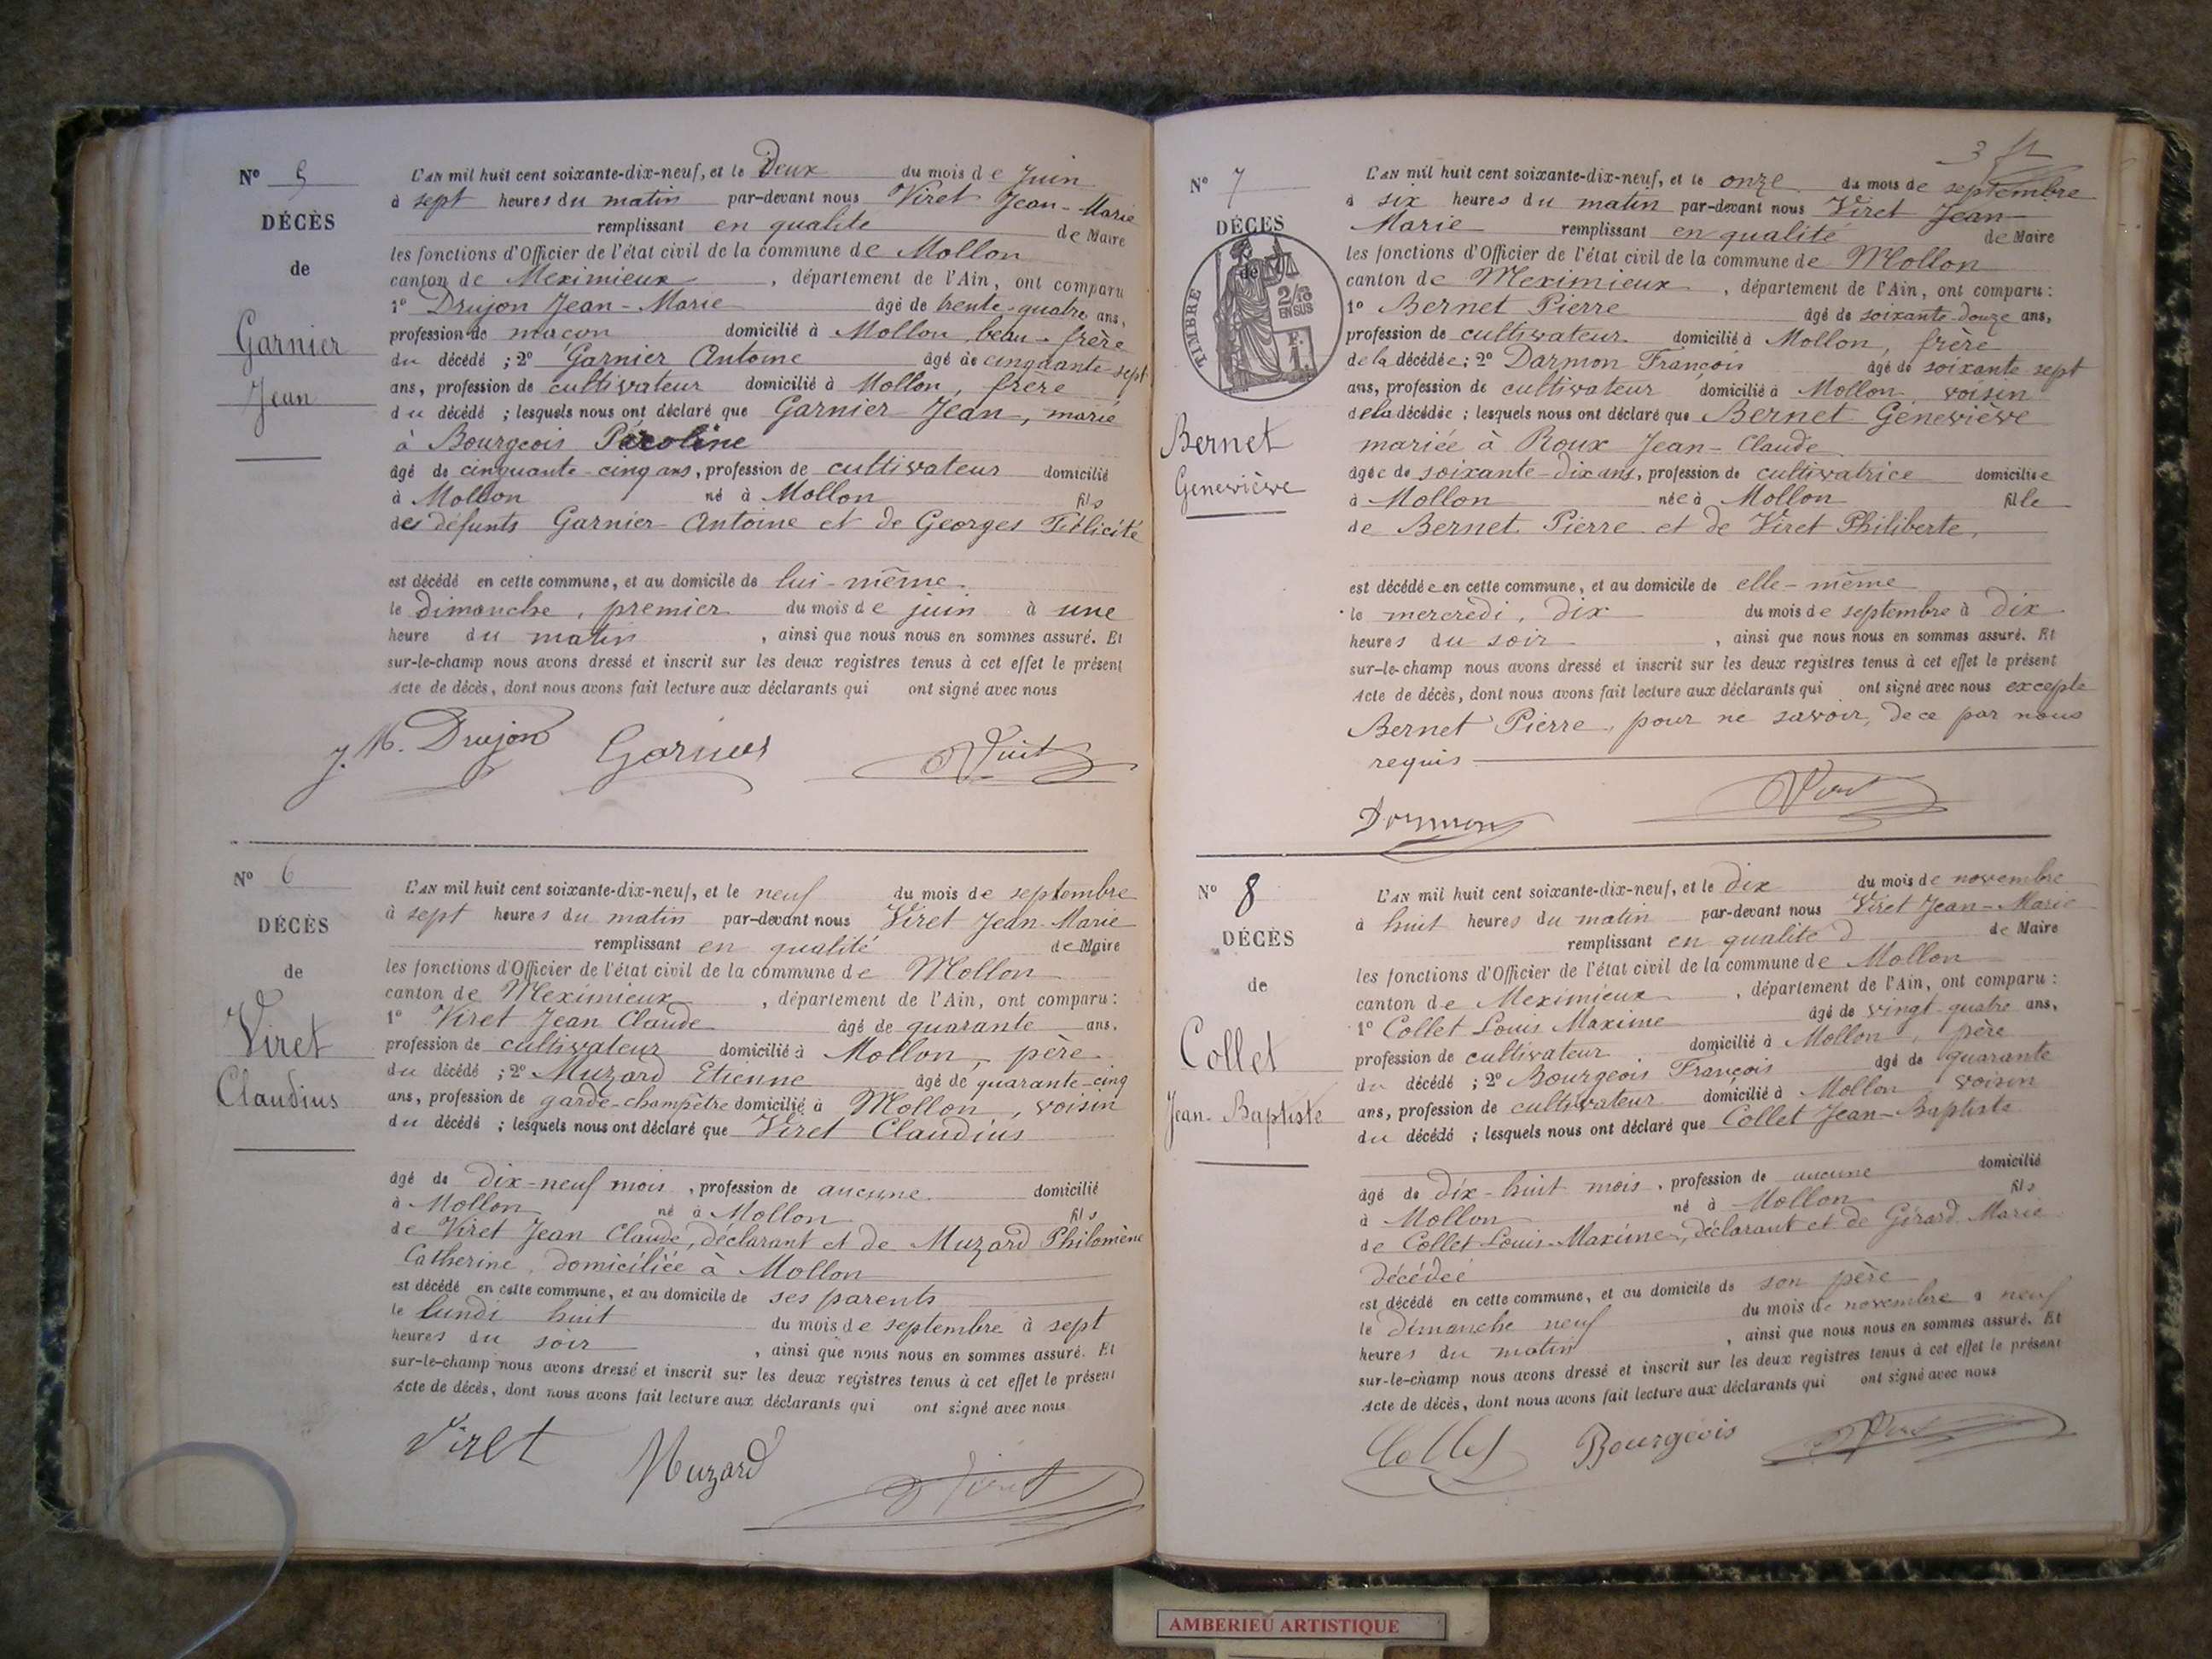 N° 5
DÉCÈS
de
Garnier
Jean
L'AN mil huit cent soixante-dix-neuf, et le Deux du mois de Juin
à sept heures du matin par-devant nous Viret Jean-Marie
remplissant en qualité de Maire
les fonctions d'Officier de l'état civil de la commune de Mollon
canton de Meximieux, département de l'Ain, ont comparu
1° Drujon Jean-Marie âgé de trente-quatre ans,
profession de maçon domicilié à Mollon, beau-frère
du décédé ; 2° Garnier Antoine âgé de cinquante-sept
ans, profession de cultivateur domicilié à Mollon, frère
du décédé ; lesquels nous ont déclaré que Garnier Jean, marié
à Bourgeois
âgé de cinquante-cinq ans, profession de cultivateur domicilié
à Mollon né à Mollon fils
des défunts Garnier Antoine et de Georges Félicité
est décédé en cette commune, et au domicile de lui-même
le dimanche, premier du mois de juin à une
heure du matin, ainsi que nous nous en sommes assuré. Et
sur-le-champ nous avons dressé et inscrit sur les deux registres tenus à cet effet le présent
Acte de décès, dont nous avons fait lecture aux déclarants qui ont signé avec nous
J. M. Drujon Garnier Viret
N° 6
DÉCÈS
de
Viret
Claudius
L'AN mil huit cent soixante-dix-neuf, et le neuf du mois de septembre
à sept heures du matin par-devant nous Viret Jean-Marie
remplissant en qualité de Maire
les fonctions d'Officier de l'état civil de la commune de Mollon
canton de Meximieux, département de l'Ain, ont comparu :
1° Viret Jean Claude âgé de quarante ans,
profession de cultivateur domicilié à Mollon, père
du décédé ; 2° Muzard Etienne âgé de quarante-cinq
ans, profession de garde-champêtre domicilié à Mollon, voisin
du décédé ; lesquels nous ont déclaré que Viret Claudius
âgé de dix-neuf mois, profession de aucune domicilié
à Mollon né à Mollon fils
de Viret Jean Claude, déclarant et de Muzard Philomène
Catherine, domiciliée à Mollon
est décédé en cette commune, et au domicile de ses parents
le lundi huit du mois de septembre à sept
heures du soir, ainsi que nous nous en sommes assuré. Et
sur-le-champ nous avons dressé et inscrit sur les deux registres tenus à cet effet le présent
Acte de décès, dont nous avons fait lecture aux déclarants qui ont signé avec nous
Viret Muzard Viret
N° 7
DÉCÈS
de
TIMBRE
2/10
EN SUS
F.
1.
Bernet
Geneviève
L'AN mil huit cent soixante-dix-neuf, et le onze du mois de septembre
à six heures du matin par-devant nous Viret Jean-
Marie remplissant en qualité de Maire
les fonctions d'Officier de l'état civil de la commune de Mollon
canton de Meximieux, département de l'Ain, ont comparu :
1° Bernet Pierre âgé de soixante-douze ans,
profession de cultivateur domicilié à Mollon, frère
de la décédée ; 2° Darmon François âgé de soixante sept
ans, profession de cultivateur domicilié à Mollon, voisin
de la décédée ; lesquels nous ont déclaré que Bernet Geneviève
mariée à Roux Jean-Claude
âgée de soixante-dix ans, profession de cultivatrice domiciliée
à Mollon née à Mollon fille
de Bernet Pierre et de Viret Philiberte,
est décédée en cette commune, et au domicile de elle-même
le mercredi, dix du mois de septembre à dix
heures du soir, ainsi que nous nous en sommes assuré. Et
sur-le-champ nous avons dressé et inscrit sur les deux registres tenus à cet effet le présent
Acte de décès, dont nous avons fait lecture aux déclarants qui ont signé avec nous excepté
Bernet Pierre, pour ne savoir, de ce par nous
requis
Darmon Viret
N° 8
DÉCÈS
de
Collet
Jean-Baptiste
L'AN mil huit cent soixante-dix-neuf, et le dix du mois de novembre
à huit heures du matin par-devant nous Viret Jean-Marie
remplissant en qualité d de Maire
les fonctions d'Officier de l'état civil de la commune de Mollon
canton de Meximieux, département de l'Ain, ont comparu :
1° Collet Louis Maxime âgé de vingt-quatre ans,
profession de cultivateur domicilié à Mollon, père
du décédé ; 2° Bourgeois François âgé de quarante
ans, profession de cultivateur domicilié à Mollon voisin
du décédé ; lesquels nous ont déclaré que Collet Jean-Baptiste
âgé de dix-huit mois, profession de aucune domicilié
à Mollon né à Mollon fils
de Collet Louis-Maxime, déclarant et de Gérard Marie
décédée
est décédé en cette commune, et au domicile de son père
le dimanche neuf du mois de novembre à neuf
heures du matin, ainsi que nous nous en sommes assuré. Et
sur-le-champ nous avons dressé et inscrit sur les deux registres tenus à cet effet le présent
Acte de décès, dont nous avons fait lecture aux déclarants qui ont signé avec nous
Collet Bourgeois Viret
AMBERIEU ARTISTIQUE